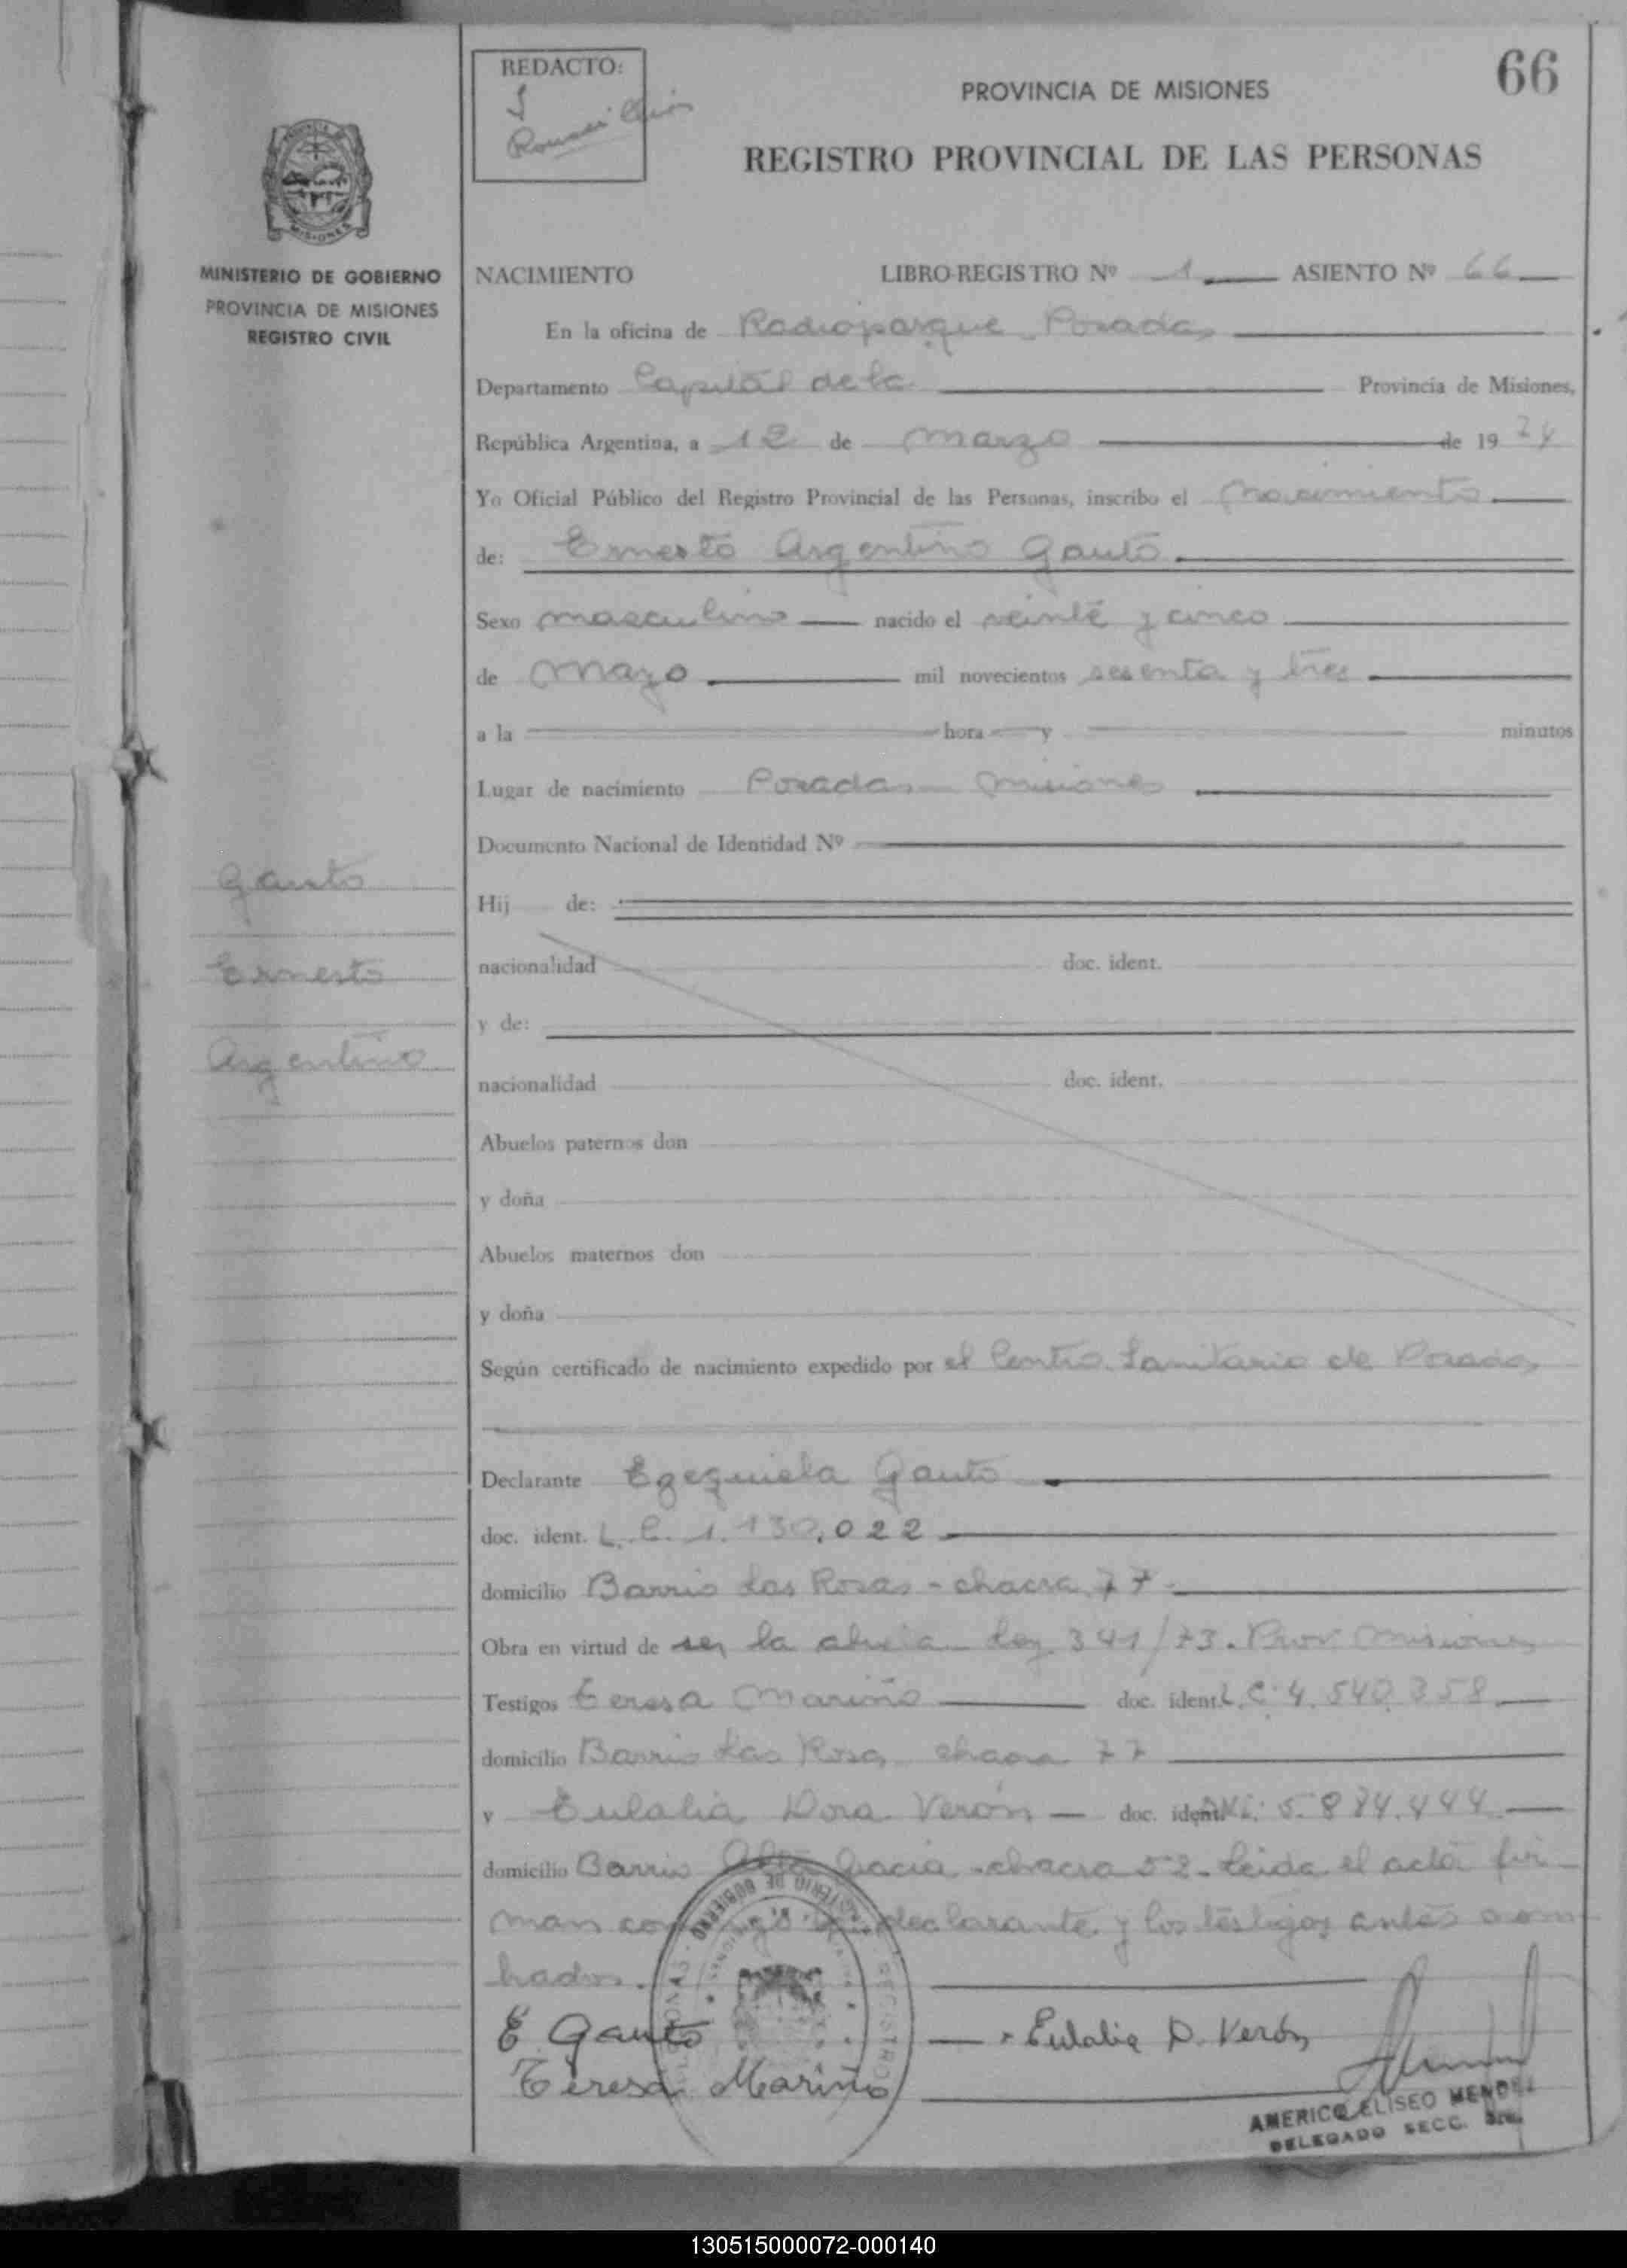 REDACTO:
PROVINCIA DE MISIONES
66
REGISTRO PROVINCIAL DE LAS PERSONAS
MISIONES
MINISTERIO DE GOBIERNO
PROVINCIA DE MISIONES
REGISTRO CIVIL
NACIMIENTO LIBRO-REGISTRO Nº 1 ASIENTO Nº 66
En la oficina de Radioparque Posadas
Departamento Capital de la Provincia de Misiones,
República Argentina, a 12 de marzo de 1974
Yo Oficial Público del Registro Provincial de las Personas, inscribo el Nacimiento
de: Ernesto Argentino Gauto
Sexo masculino nacido el veinte y cinco
de Mayo mil novecientos sesenta y tres
a la hora y minutos
Lugar de nacimiento Posadas Misiones
Documento Nacional de Identidad Nº
Gauto
Hij de:
Ernesto
nacionalidad doc. ident.
y de:
Argentino
nacionalidad doc. ident.
Abuelos paternos don
y doña
Abuelos maternos don
y doña
Según certificado de nacimiento expedido por el Centro Sanitario de Posadas
Declarante Ezequiela Gauto
doc. ident. L.C. 1.130.022
domicilio Barrio Las Rosas - chacra 77
Obra en virtud de ser la abuela - Ley 341/73. Prov. Misiones
Testigos Teresa Mariño doc. ident. L.C. 4.540.358
domicilio Barrio Las Rosas chacra 77
y Eulalia Dora Verón doc. ident. 5.884.444
domicilio Barrio Alta Gracia - chacra 52 - Leida el acta fir
man conmigo la declarante y los testigos antes nom
brados.
E Gauto
Eulalia D. Verón
Teresa Mariño
AMERICO ELISEO MENDEZ
DELEGADO SECC.
130515000072-000140